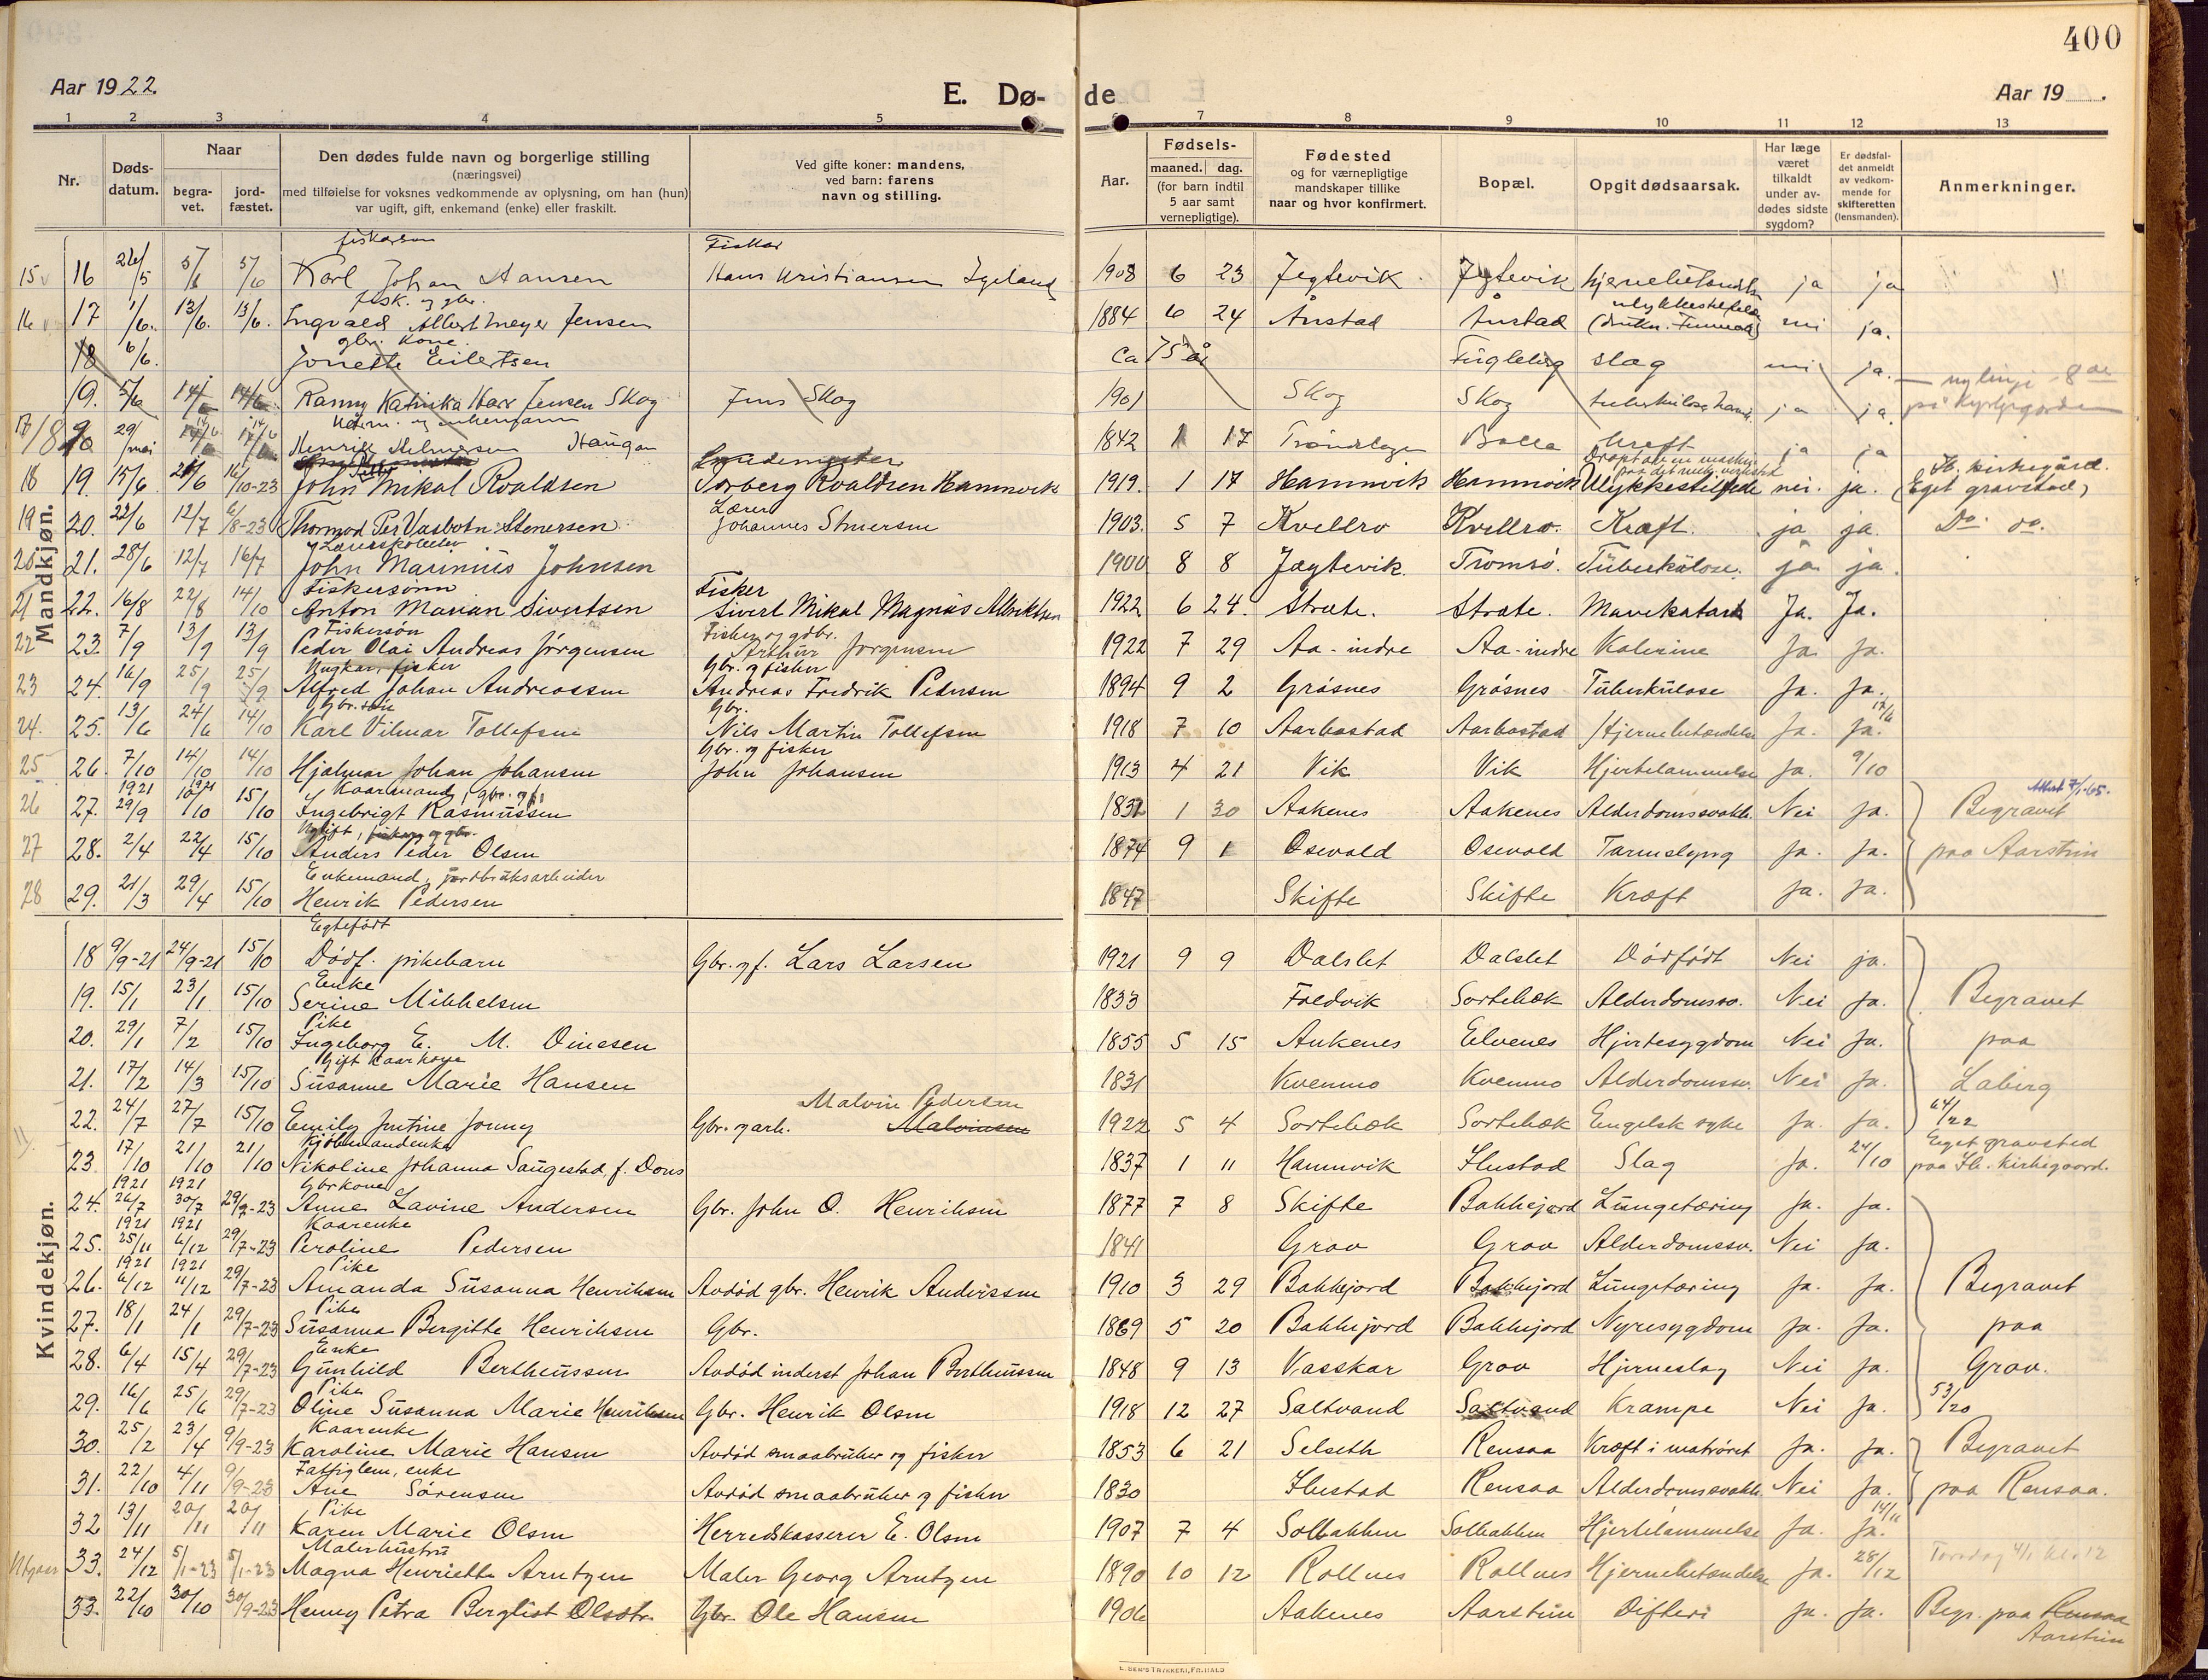 400
Aar 1922.
E. Dø-
de
Aar 19 .
1 2 3 4 5 6 7 8 9 10 11 12 13
Nr.
Døds-
datum.
Naar
begra-
vet.
jord-
fæstet.
Den dødes fulde navn og borgerlige stilling
(næringsvei)
med tilføielse for voksnes vedkommende av oplysning, om han (hun)
var ugift, gift, enkemand (enke) eller fraskilt.
Ved gifte koner: mandens,
ved barn: farens
navn og stilling.
Aar.
Fødsels-
maaned. dag.
(for barn indtil
5 aar samt
vernepligtige).
Fødested
og for værnepligtige
mandskaper tillike
naar og hvor konfirmert.
Bopæl.
Opgit dødsaarsak.
Har læge
været
tilkaldt
under av-
dødes sidste
sygdom?
Er dødsfal-
det anmeldt
av vedkom-
mende for
skifteretten
(lensmanden).
Anmerkninger.
Mandkjøn.
fiskersøn Fisker
15 16 26/5 5/6 5/6 Karl Johan Hansen Hans Kristiansen 1908 6 23 Jegtevik Jegtevik hjernebetændelse ja ja
fisk. og gbr.
16 17 1/6. 13/6. 13/6. Ingvald Albert Meyer Jensen 1884 6 24 Ånstad Ånstad ja.
gbr. kone
18 6/6. Jonette Eilertsen Ca 75 år Fugleberg slag ja.
19. 5/6 14/6 14/6 Ranny Katinka Jensen Skog Jens Skog 1901 Skog Skog ja ja
17/18 29/mai Henrik Helmersen Haugan 1842 1 17 Balla Kræft ja ja
18 19. 15/6 16/10-23 John Mikal Roaldsen Torberg Roaldsen Hamnvik 1919. 1 17 Hamnvik Hamnvik Ulykkestilfelde nei. ja. (Eget gravsted)
Lærer
19 20. 22/6 12/7 6/8-23 Thormod Per Vasbotn Stenersen Johannes Stenersen 1903. 5 7 Kvellro Kvellro. Kræft. ja ja. Do. do.
20 21. 28/6 12/7 16/7 John Marinius Johnsen 1900 8 8 Jægtevik. Tromsø. Tuberkulose. ja ja.
Fiskersønn Fisker
21 22. 16/8 22/8 14/10 Anton Marian Sivertsen Sivert Mikal Magnus Albriktsen 1922 6 24. Strate. Strate. Mavekatarh Ja. Ja.
Fiskersøn Fisker og gdbr.
22 23. 7/9 13/9 13/9 Peder Olai Andreas Jørgensen Arthur Jørgensen 1922 7 29 Aa-indre Aa-indre Kolerine Ja. Ja.
Ungkar, fisker Gbr. og fisker
23 24. 16/9 25/9 25/9 Alfred Johan Andreassen Andreas Fredrik Pedersen 1894 9 2 Grøsnes Grøsnes Tuberkulose Ja. Ja.
Gbr. søn Gbr. 17/6
24. 25. 13/6 24/6 14/10 Karl Vilmar Tollefsen Nils Martin Tollefsen 1918 7 10 Aarbostad Aarbostad Hjernebetændelse Ja. Ja.
Gbr. og fisker
25 26. 7/10 14/10 14/10 Hjalmar Johan Johansen John Johansen 1913 4 21 Vik Vik Hjertelammelse Ja. 9/10
1921 Kaarmand, gbr. og f.
26 27. 29/9 10/10 15/10 Ingebrigt Rasmussen 1831 1 30 Aakenes Aakenes Alderdomssvakh. Nei Ja. Begravet
Ugift,
27 28. 2/4 22/4 15/10 Anders Peder Olsen 1874 9 1 Osevold Osevold Tarmslyng Ja. Ja. paa Aarstein
Enkemand, jordbruksarbeider
28 29. 21/3 29/4 15/10 Henrik Pedersen 1847 Skifte Skifte Kræft Ja. Ja.
Kvindekjøn.
Egtefødt
18 9/9-21 24/9-21 15/10 Dødf. pikebarn Gbr. og f. Lars Larsen 1921 9 9 Dalslet Dalslet Dødfødt Nei ja.
Enke
19. 15/1 23/1 15/10 Serine Mikkelsen 1833 Foldvik Sortebæk Alderdomssv. Nei Ja. Begravet
Pike
20. 29/1 7/2 15/10 Ingeborg E. M. Dinesen 1855 5 15 Aakenes Elvenes Hjertesygdom Nei Ja. paa
Gift Kaarkone
21. 17/2 14/3 15/10 Susanne Marie Hansen 1831 Kvernmo Kvernmo Alderdomssv. Nei Ja. Laberg
Malvin Pedersen
22. 24/7 27/7 15/10 Emily Justine Jenny Gbr. og arb. Malvinsen 1922 5 4 Sortebæk Sortebæk Engelsk syke Ja. Ja. 64/22
Kjøbmandenke Eget gravsted
23. 17/10 21/10 21/10 Nikoline Johanna Saugestad f. Dons 1837 1 11 Hamnvik Ilustad Slag Ja. 24/10 paa Ib. kirkegaard.
1921 1921 Gbrkone
24. 26/7 30/7 29/7-23 Anne Lavine Andersen Gbr. John O. Henriksen 1877 7 8 Skifte Bakkejord Lungetæring Ja. Ja.
1921 1921 Kaarenke
25. 25/11 6/12 29/7-23 Peroline Pedersen 1841 Grov Grov Alderdomssv. Nei Ja.
1921 1921 Pike
26. 6/12 11/12 29/7-23 Amanda Susanna Henriksen Avdød gbr. Henrik Anderssen 1910 3 29 Bakkejord Bakkejord Lungetæring Ja. Ja. Begravet
Pike
27. 18/1 24/1 29/7-23 Susanna Bergitte Henriksen Gbr. 1869 5 20 Bakkejord Bakkejord Nyresygdom Ja. Ja. paa
Enke
28. 6/4 15/4 29/7-23 Gunhild Bertheussen Avdød inderst Johan Bertheussen 1848 9 13 Vasskar Grov Hjerneslag Nei Ja. Grov.
Pike
29. 16/6 25/6 29/7-23 Oline Susanna Marie Henriksen Gbr. Henrik Olsen 1918 12 27 Saltvand Saltvand Krampe Nei Ja. 53/20
Kaarenke
30. 25/2 23/4 9/9-23 Karoline Marie Hansen Avdød smaabruker og fisker 1853 6 21 Selseth Rensaa Kræft i matrøret Ja. Ja. Begravet
Fattiglem, enke
31. 22/10 4/11 9/9-23 Ane Sørensen Avdød smaabruker og fisker 1830 Ilustad Rensaa Alderdomssvakh. Nei Ja. paa Rensaa.
Pike 14/11
32 13/11 20/11 20/11 Karen Marie Olsen Herredskasserer E. Olsen 1907 7 4 Solbakken Solbakken Hjertelammelse Ja. Ja.
Malerhustru
33. 24/12 5/1-23 5/1-23 Magna Henriette Arntzen Maler Georg Arntzen 1890 10 12 Rollnes Rollnes Hjernebetændelse Ja. 28/12
33. 22/10 30/10 30/9-23 Henny Petra Berglist Olsdtr. Gbr. Ole Hansen 1906 Aakenes Aarstein Difteri Ja. Ja. Begr. paa Rensaa
Aarstein